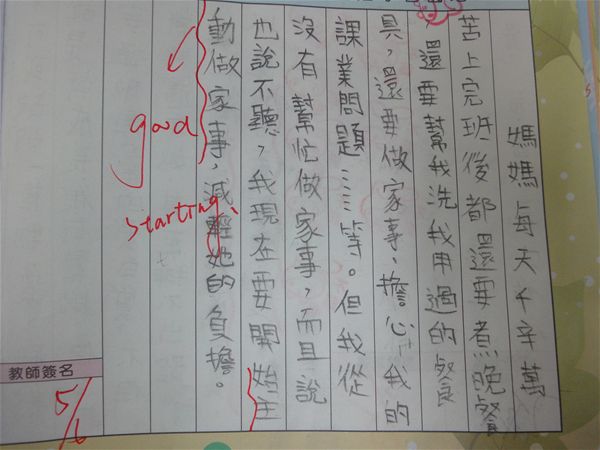 媽媽每天千辛萬
苦上完班後都還要煮晚餐
，還要幫我洗我用過的餐
具，還要做家事、擔心我的
課業問題……等。但我從
沒有幫忙做家事，而且說
也說不聽，我現在要開始主
動做家事，減輕她的負擔。
good
starting
教師簽名
5/6